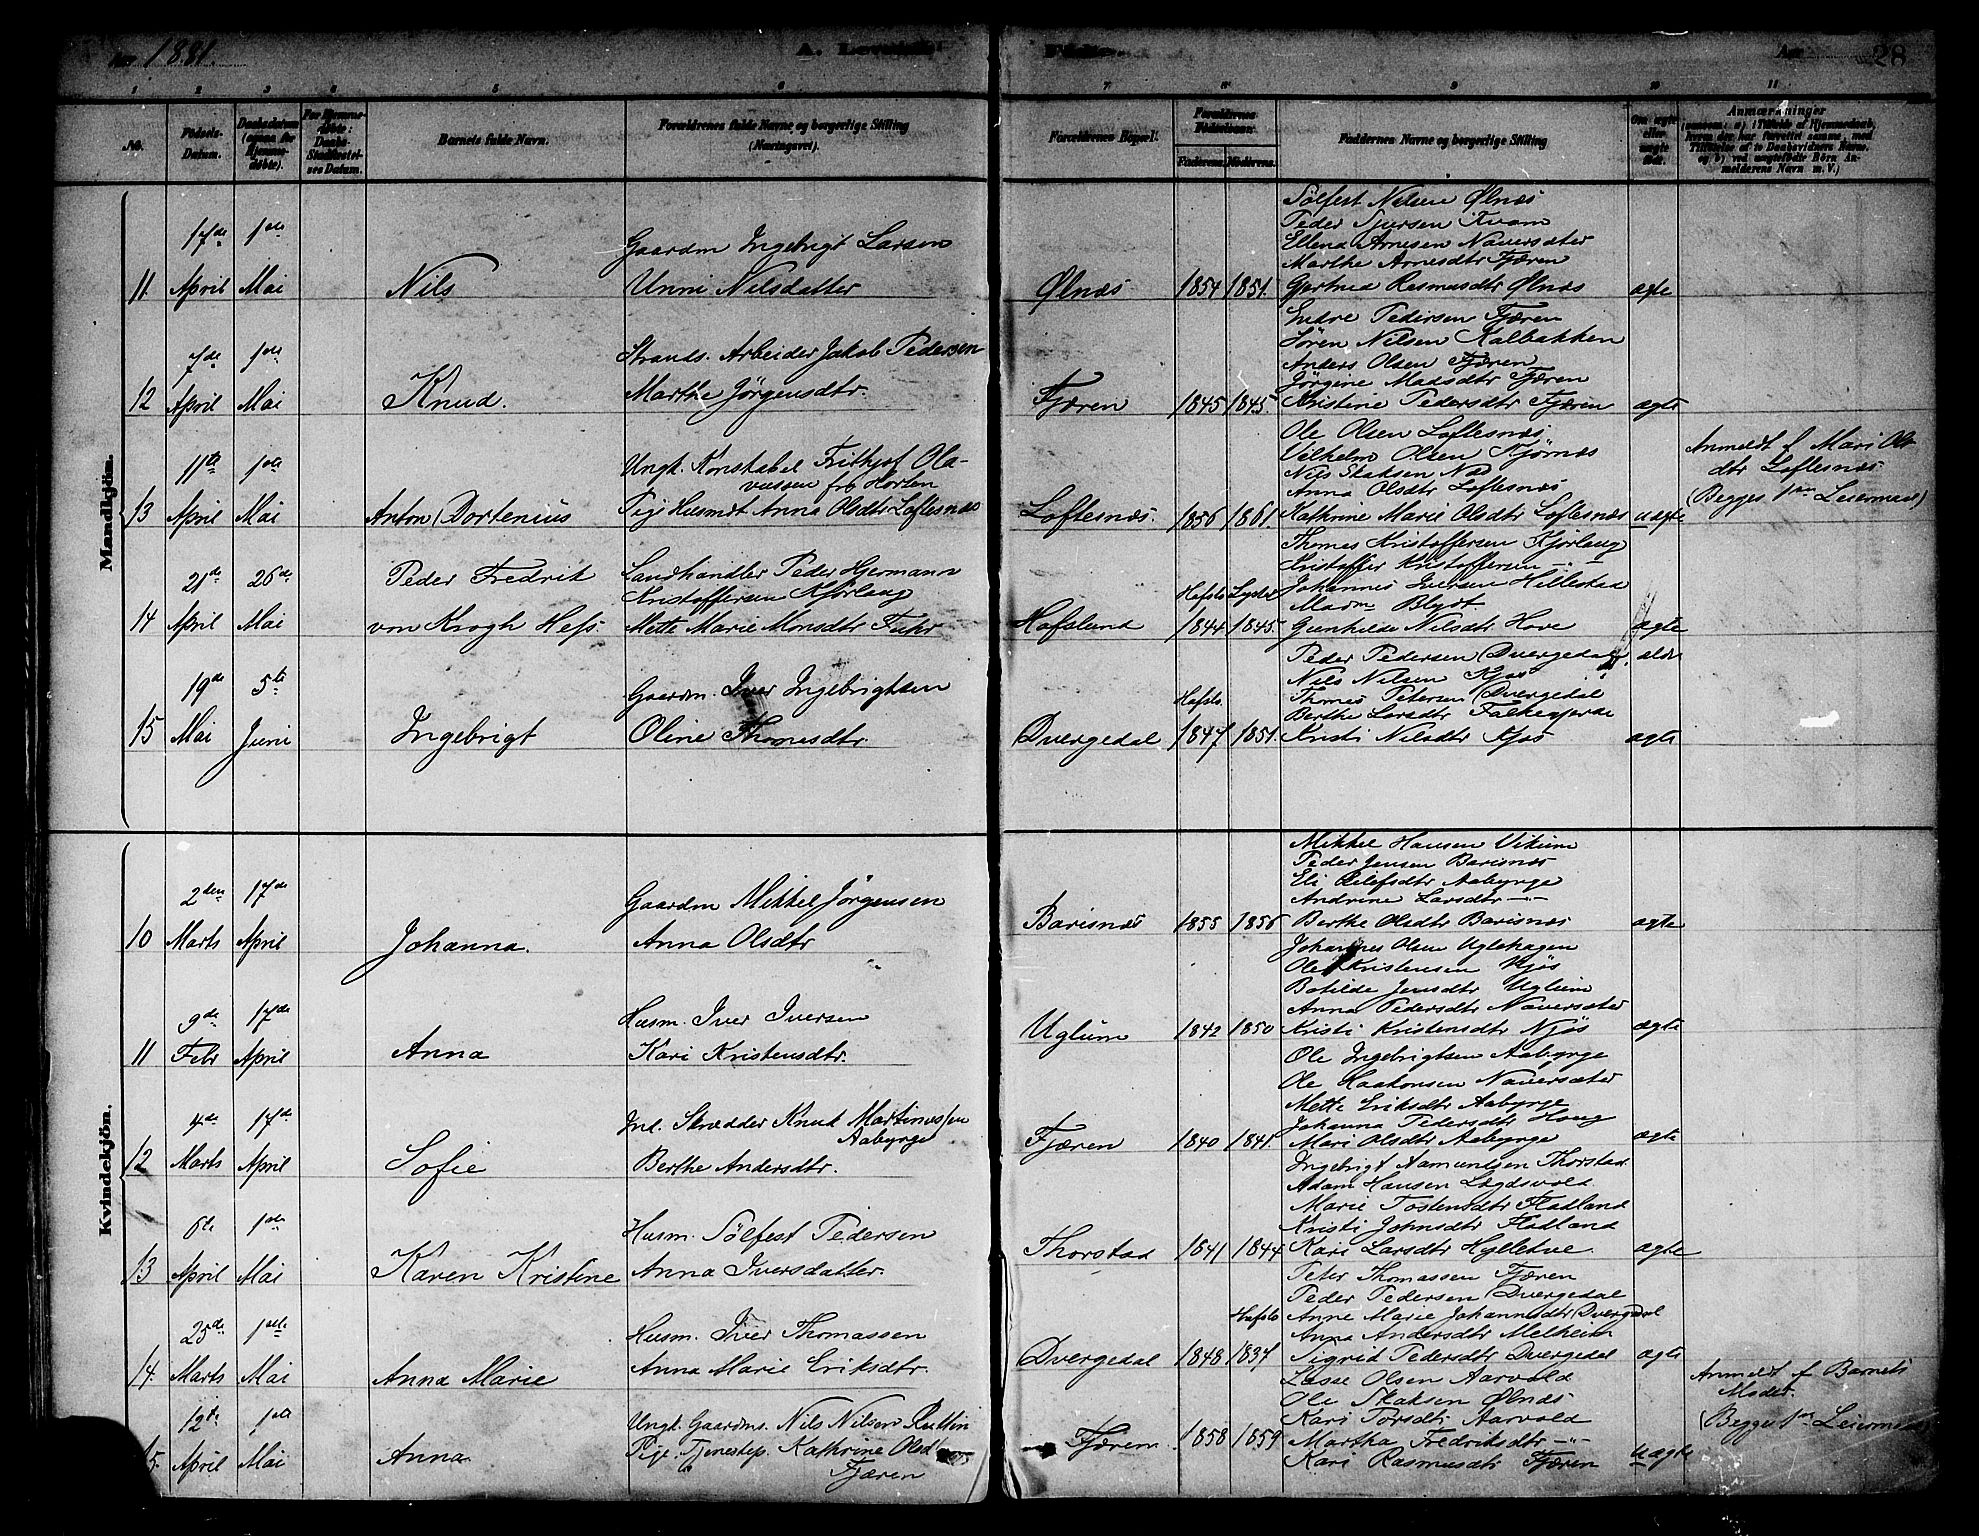 Aar 1881.
A. Levende
Fødte.
Aar 28
1 2 3 4 5 6 7 8 9 10 11
No.
Fødsels-Datum.
Daabsdatum (ogsaa for Hjemmedøbte).
For Hjemmedøbte: Daabs Stadfæstelses Datum.
Barnets fulde Navn.
Forældrenes fulde Navne og borgerlige Stilling (Næringsvei).
Forældrenes Bopæl.
Forældrenes Fødselsaar.
Faderens. Moderens.
Faddernes Navne og borgerlige Stilling
Om ægte eller uægte født.
Anmærkninger
Mandkjøn.
11 17de April 1ste Mai Nils
Gaardm Ingebrigt Larsen
Unni Nilsdatter
Ølnæs 1854 1851.
Sølfest Nilsen Ølnæs
Peder Sjursen Kvam
Ellend Arnesen Naversæter
Marthe Arnesdtr Fjæren
Gjertrud Rasmusdtr Ølnæs
ægte
12 7de April 1ste Mai Knud.
Strands. Arbeider Jakob Pedersen
Marthe Jørgensdtr.
Fjæren 1845 1845.
Endre Pedersen Fjæren
Søren Nilsen Kalbakken
Anders Olsen Fjæren
Jørgine Madsdtr Fjæren
Kristine Pedersdtr Fjæren
ægte
13 11te April 1ste Mai Anton Dortenius
Ungk. Konstabel Frithjof Olavessen fra Horten
Pige Husmdt Anna Olsdtr Loftesnæs
Loftesnæs. 1856 1861.
Ole Olsen Loftesnæs
Vilhelm Olsen Kjørnæs
Nils Skaksen Næs
Anna Olsdtr Loftesnæs
Kathrine Marie Olsdtr Loftesnæs
uægte
Anmeldt af Mari Olsdtr Loftesnæs.
(Begges 1ste Leiermaal)
14 21de April 26de Mai Peder Fredrik von Krogh Hess
Landhandler Peder Hjermann
Kristoffersen Kjørlaug
Mette Marie Monsdtr Fuhr
Hafslund Hafslo 1844 Lyster 1845.
Thomas Kristoffersen Kjørlaug
Kristoffer Kristoffersen -"-
Johannes Iversen Hillestad
Madm Blyst
Gunhilde Nilsdtr Hove
ægte
15 19de Mai 5te Juni Ingebrigt
Gaardm. Iver Ingebrigtsen
Oline Thomesdtr.
Dvergedal Hafslo. 1847 1851.
Peder Pedersen Dvergedal
Nils Nilsen Kjøs
Thomas Petersen Dvergedal
Berthe Larsdtr Falkegjerde
Kristi Nilsdtr Kjøs
ægte
Kvindekjøn.
10 2den Marts 17de April Johanna.
Gaardm Mikkel Jørgensen
Anna Olsdtr
Barisnæs 1855 1856
Mikkel Hansen Vikum
Peder Jensen Barisnæs
Eli Relefsdtr Aabyrge
Andrine Larsdtr -"-
Berthe Olsdtr Barisnæs
ægte
11 9de Febr 17de April Anna
Husm. Iver Iversen
Kari Kristensdtr.
Uglum 1842 1850
Johannes Olsen Uglehagen
Ole Kristensen Njøs
Botilde Jensdtr Uglum
Anna Pedersdtr Naversæter
Kristi Kristensdtr Njøs
ægte
12 4de Marts 17de April Sofie
Ind. Skrædder Knut Martinussen Aabyrge
Berthe Andersdtr.
Fjæren 1840 1841.
Ole Ingebrigtsen Aabyrge
Ole Haakonsen Naversæter
Mette Eriksdtr Aabyrge
Johanna Pedersdtr Houg
Mari Olsdtr Aabyrge
ægte
13 6te April 1ste Mai Karen Kristene
Husm. Sølfest Pedersen
Anna Iversdatter.
Thorstad 1841 1844
Ingebrigt Aamundsen Thorstad.
Adam Hansen Lægdsvold.
Marie Tostensdtr Fladland
Kristi Johnsdtr Fladland
Kari Larsdtr Hylletve.
ægte
14. 25de Marts 1ste Mai Anna Marie
Husm. Iver Thomassen
Anna Marie Eriksdtr.
Dvergedal 1848 Hafslo 1837
Peter Thomassen Fjæren
Peder Pedersen Dvergedal
Anne Marie Johannesdtr Dvergedal
Anna Andersdtr Melheim
Sigrid Pedersdtr Dvergedal
ægte
15. 12te April 1ste Mai Anna
Ungk. Gaardms. Nils Nilsen Ruttin
Pige. Tjenestep. Kathrine Olsdtr Fjæren
Fjæren. 1858 1859
Lasse Olsen Aarvold
Ole Skaksen Ølnæs
Kari Torsdtr Aarvold
Martha Fredriksdtr -"-
Kari Rasmusdtr Fjæren
uægte
Anmeldt af Barnets Moder.
(Begges 1ste Leiermaal)